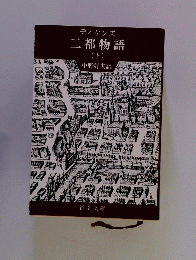 ディケンズ
二都物語
(下)
中野好夫訳
新潮文庫